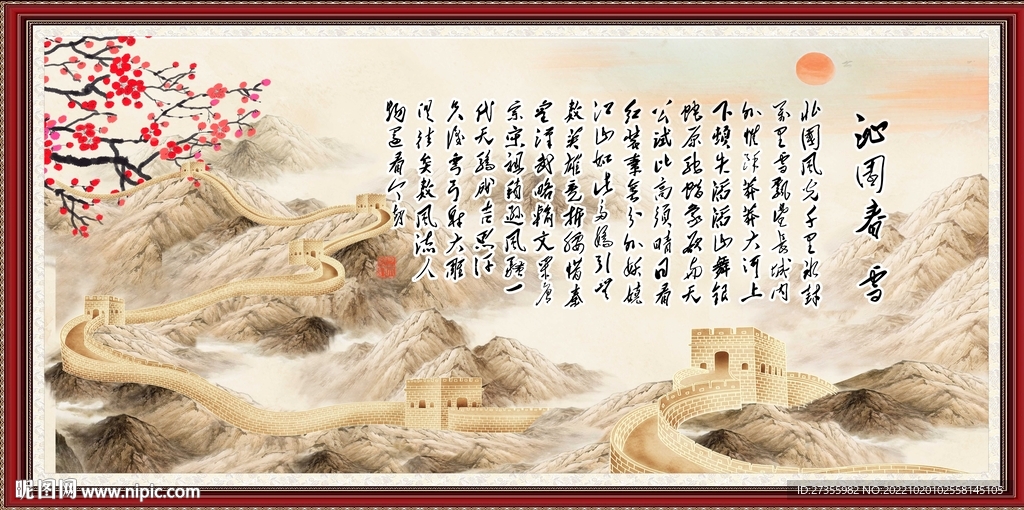 沁園春 雪
北國風光千里冰封
萬里雪飄望長城内
外惟餘莽莽大河上
下頓失滔滔山舞銀
蛇原馳蠟象欲與天
公試比高須晴日看
紅裝素裹分外妖嬈
江山如此多嬌引無
數英雄競折腰惜秦
皇漢武略輸文采唐
宗宋祖稍遜風騷一
代天驕成吉思汗
只識彎弓射大雕
俱往矣數風流人
物還看今朝
昵图网 www.nipic.com
ID:27355982 NO:20221020102558145105